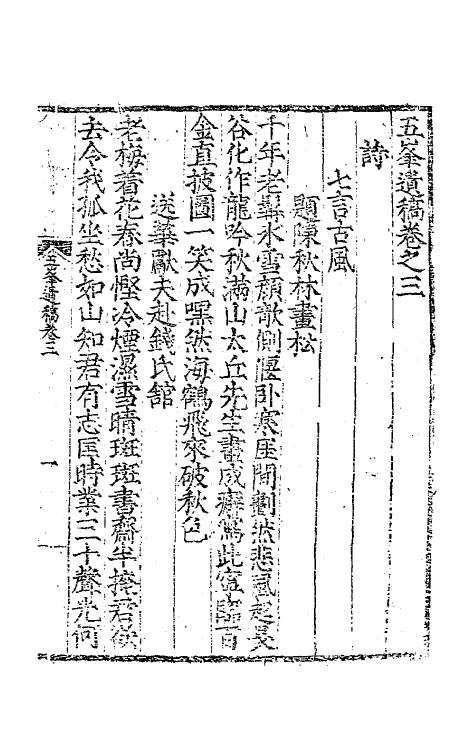 五峯遺稿卷之三
詩
七言古風
題陳秋林畫松
千年老榦氷雪顏欹側偃卧寒崖間劃然悲風起長
谷化作龍吟秋滿山太丘先生畫成癖寫此堂臨百
金直披圖一笑成嘿然海鶴飛來破秋色
送華獻夫赴錢氏舘
老梅着花春尚慳冷煙濕雪晴斑斑書齋半掩君欲
去令我孤坐愁如山知君有志匡時業三十聲光何
五峯遺稿卷三
一